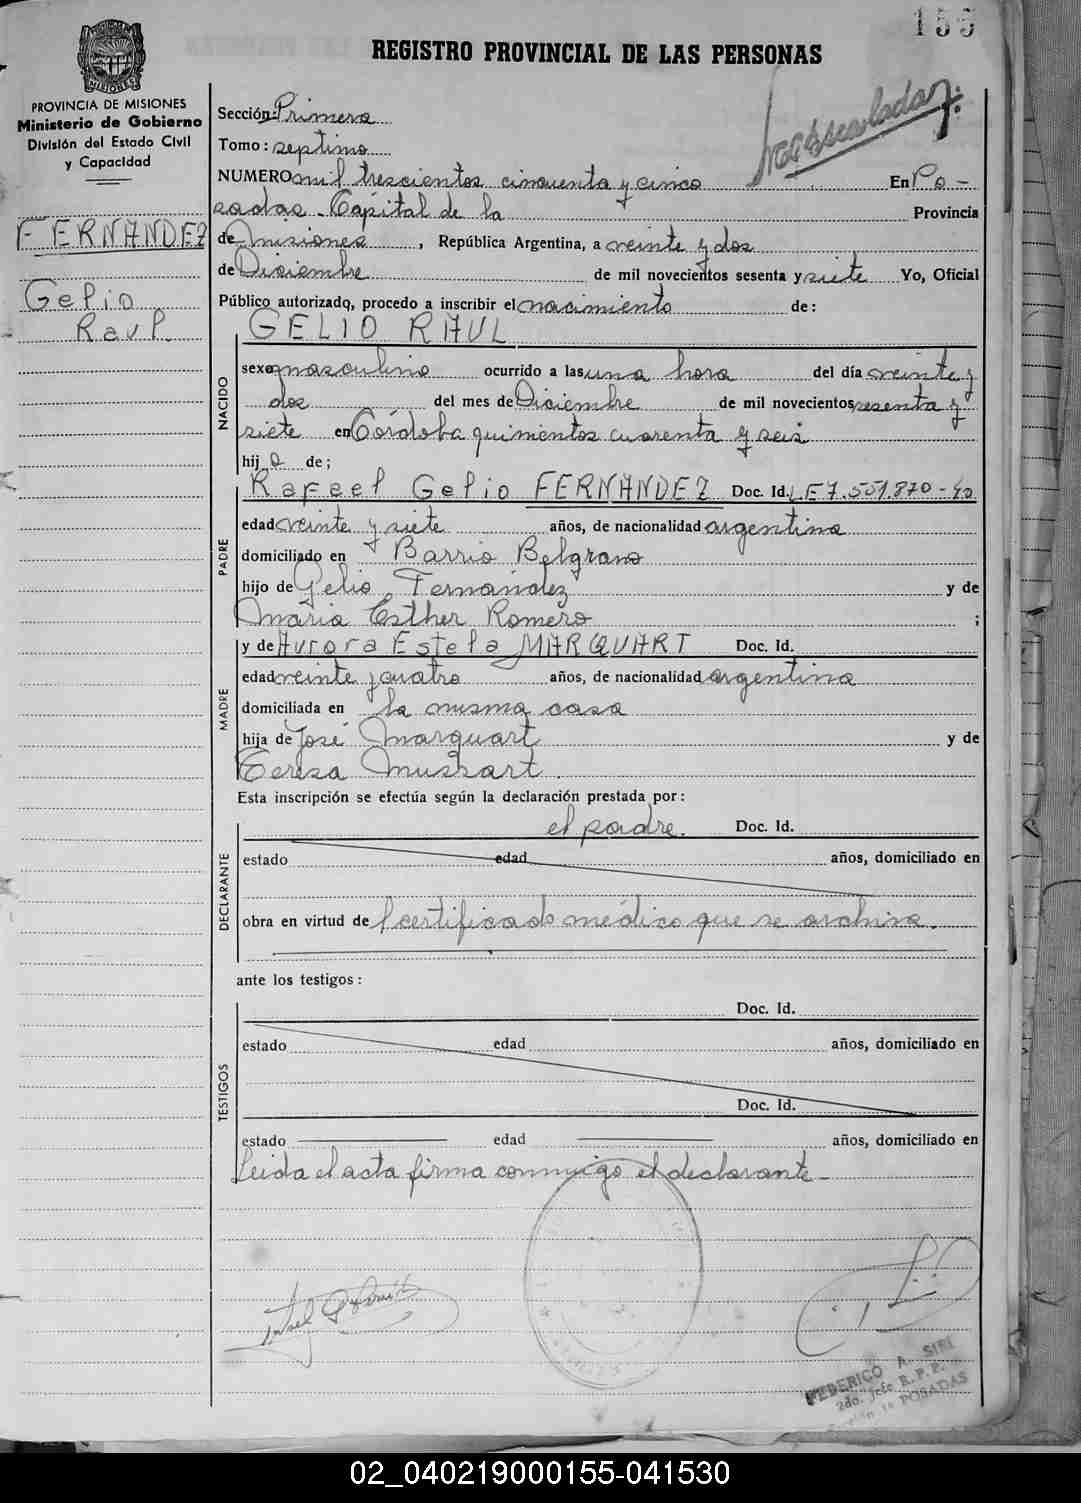 155
REGISTRO PROVINCIAL DE LAS PERSONAS
PROVINCIA DE MISIONES
Ministerio de Gobierno
División del Estado Civil
y Capacidad
FERNANDEZ
Gelio
Raul.
Sección: Primera
Tomo: septimo
NUMERO mil trescientos cincuenta y cinco En Po-
sadas - Capital de la Provincia
de Misiones, República Argentina, a veinte y dos
de Diciembre de mil novecientos sesenta y siete Yo, Oficial
Público autorizado, procedo a inscribir el nacimiento de:
NACIDO
GELIO RAUL
sexo masculino ocurrido a las una hora del día veinte y
dos del mes de Diciembre de mil novecientos sesenta y
siete en Córdoba quinientos cuarenta y seis
hijo de;
PADRE
Rafael Gelio FERNANDEZ Doc. Id. LE 7.551.870-
edad veinte y siete años, de nacionalidad argentina
domiciliado en Barrio Belgrano
hijo de Gelio Fernández y de
Maria Esther Romero ;
MADRE
y de Aurora Estela MARQUART Doc. Id.
edad veinte y cuatro años, de nacionalidad argentina
domiciliada en la misma casa
hija de José Marquart y de
Teresa Mussart.
Esta inscripción se efectúa según la declaración prestada por:
DECLARANTE
el padre. Doc. Id.
estado edad años, domiciliado en
obra en virtud del certificado médico que se archiva.
ante los testigos:
TESTIGOS
Doc. Id.
estado edad años, domiciliado en
Doc. Id.
estado edad años, domiciliado en
Leida el acta firma conmigo el declarante-
FEDERICO A. SIRI
2do. Jefe R.P.P.
POSADAS
02_040219000155-041530